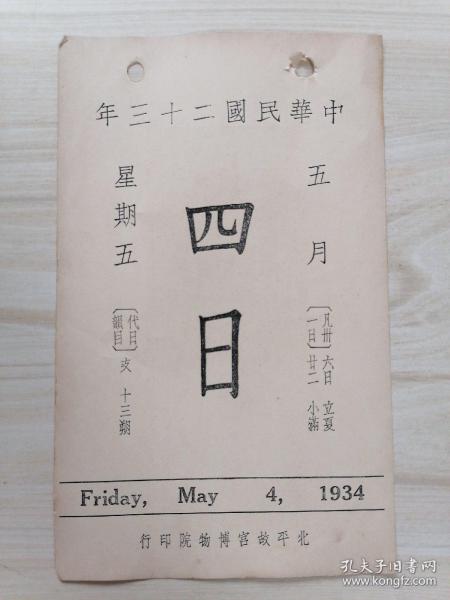 中華民國二十三年
五月
〔凡卅一日〕
六日 立夏
廿二 小滿
四日
星期五
〔代日韻目〕
支 十三朔
Friday, May 4, 1934
北平故宮博物院印行
孔夫子旧书网
www.kongfz.com